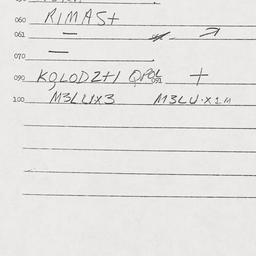 060 RIMAS+
061 —
070 —
090 KOLODZ+I 091 +
100 M3LUX3 M3LU·X1M